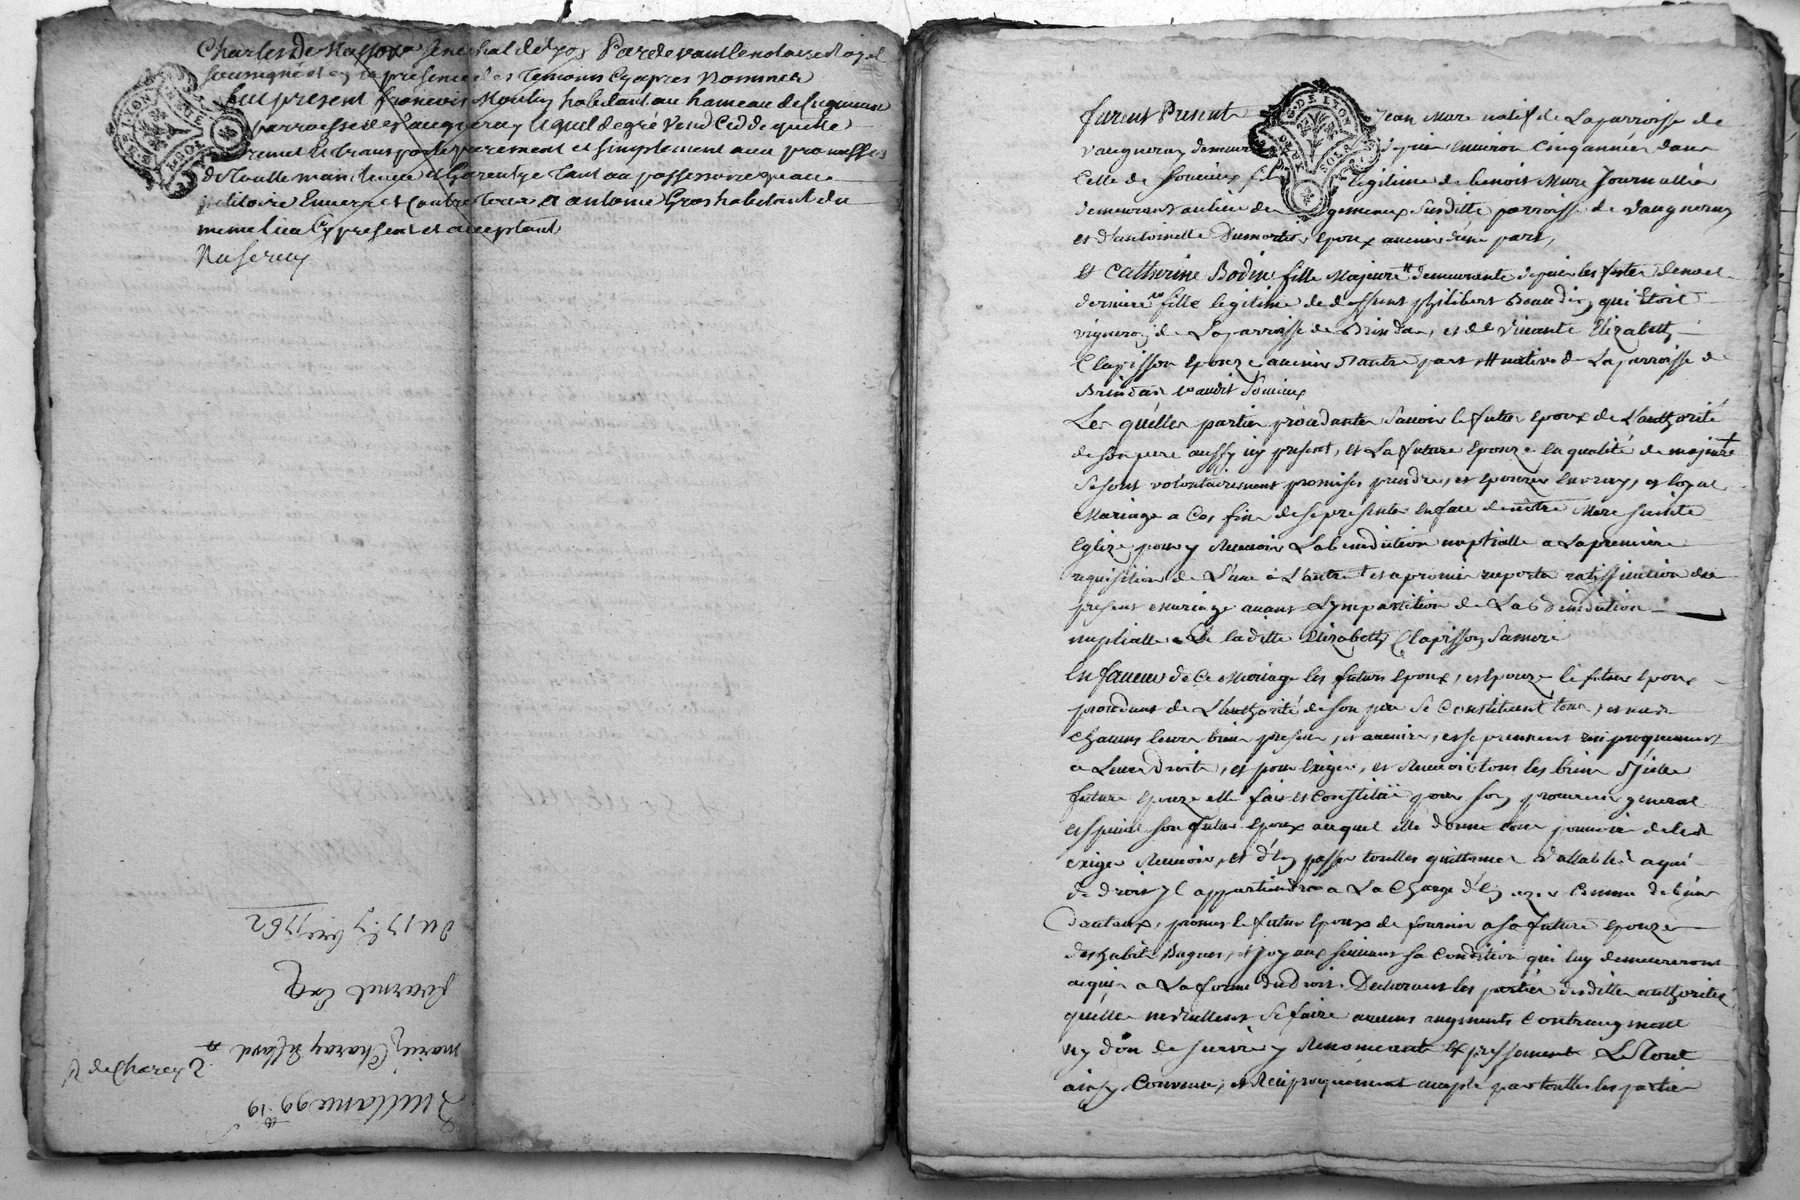 Charles de Masson senechal de Lyon Pardevant le notaire Royal
soussigné et en la presence des Temoins Cyapres Nommés
fut present francois Mouly habitant au hameau de
parroisse de vaugneray lequel de gré vend Cedde quitte
remet et transporte purement et simplement avec promesses
de Toutte maintenue et Garentye Tant au possessoire qu au
petitoire Envers et Contre Tous a antoine Gros habitant du
meme lieu Cy present et acceptant
du 17 7bre 1762
fournel Exq
marie Charay
R de Charey
furent Presents Jean Mure natif de La parroisse de
vaugneray demeurant depuis environ Cinq années dans
Celle de Soucieux fils legitime de benoit Mure Journallier
demeurant au lieu de gemeaux Susditte parroisse de vaugneray
et d'antoinette Dumortier epoux avenir d'une part,
Et Catherine Bodin fille Majeure # demeurante depuis les festes de noel
derniere fille legitime de deffunt philibert Beaudin, qui Etoit
vigneron de La parroisse de Brindas, et de vivante Elizabeth
Clapisson epouze avenir d'autre part # native de La parroisse de
Brindas audit Soucieux
Les quelles parties procedantes Savoir le futur epoux de L'authorité
de son pere aussy icy present, et La future Epouze en qualité de majeure +
Se sont volontairement promises prendre, et epouzer en vray, et loyal
Mariage a Ces fins de se presenter en face de nôtre Mere sainte
Eglize pour y Recevoir La benediction nuptialle a La premiere
requisition de L'une à L'autre + et a promis raporter ratiffication du
present mariage avant L'impartition de La Benediction
nuptialle De laditte Elizabeth Clapisson Sa mere
En faveur de Ce Mariage les futurs epoux, et epouze le futur epoux
procedant de L'authorité de son pere Se Constituent tous, et un
Chacuns leurs biens presens, et avenirs, et se prennent reciproquement
a Leurs droits, et pour Exiger, et Recevoir tous les biens d'icelle
future epouze elle fait et Constitüe pour son procureur general
et special son futur epoux auquel elle donne tout pouvoir de les
exiger Recevoir, et d'En passer touttes quittances vallables a qui
de droit Il appartiendra a La Charge d'En uzer Comme de biens
dautaux, promet le futur epoux de fournir a sa future epouze
des habits Bagues, et joyaux suivant sa Condition qui luy demeureront
acquis a La forme du Droit. Declarant les parties desdittes authorités
qu'elles ne veullent Se faire aucuns augments Contraugment
ny don de survie y Renoncant Expressement Le Tout
ainsy Convenu, et Reciproquement accepté par touttes les parties